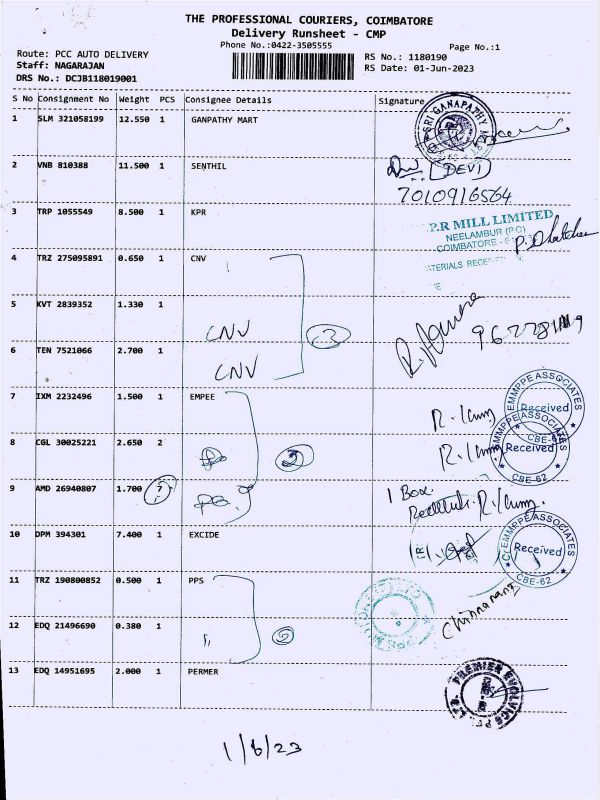 THE PROFESSIONAL COURIERS, COIMBATORE
Delivery Runsheet - CMP
Phone No.:0422-3505555
Page No.:1
Route: PCC AUTO DELIVERY
RS No.: 1180190
Staff: NAGARAJAN
RS Date: 01-Jun-2023
DRS No.: DCJB118019001
S No Consignment No Weight PCS Consignee Details Signature
1 SLM 321058199 12.550 1 GANPATHY MART
SRI GANAPATHY
2 VNB 810388 11.500 1 SENTHIL
(DEVI)
7010916564
3 TRP 1055549 8.500 1 KPR
P.R MILL LIMITED
NEELAMBUR (PO)
COIMBATORE -
4 TRZ 275095891 0.650 1 CNV
5 KVT 2839352 1.330 1
CNV
6 TEN 7521066 2.700 1
CNV
7 IXM 2232496 1.500 1 EMPEE
EMMPPE ASSOCIATES
Received
8 CGL 30025221 2.650 2
EMMPPE ASSOCIATES
Received
CBE-62
9 AMD 26940807 1.700 1 Box
10 DPM 394301 7.400 1 EXCIDE
EMMPPE ASSOCIATES
Received
CBE-62
11 TRZ 190800852 0.500 1 PPS
12 EDQ 21496690 0.380 1
13 EDQ 14951695 2.000 1 PERMER
PREMIER EVOLVICS
1/6/23